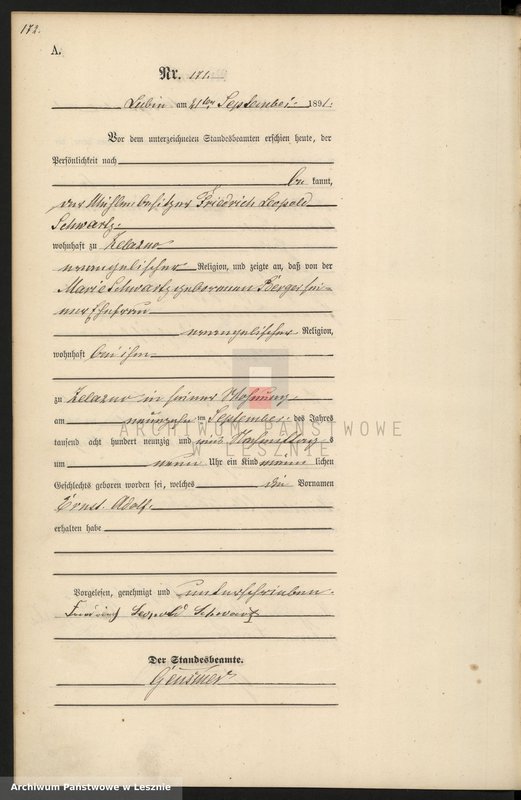 172.
A.
Nr. 171.
Lubin am 21ten September 1891.
Vor dem unterzeichneten Standesbeamten erschien heute, der
Persönlichkeit nach
be kannt,
der Mühlenbesitzer Friedrich Leopold
Schwartz
wohnhaft zu Zelazno
evangelischer Religion, und zeigte an, daß von der
Marie Schwartz geborenen Berger sei-
ner Ehefrau
evangelischer Religion,
wohnhaft bei ihm
zu Zelazno in seiner Wohnung
am neunzehn ten September des Jahres
tausend acht hundert neunzig und eins Nachmittags
um neun Uhr ein Kind männ lichen
Geschlechts geboren worden sei, welches die Vornamen
Ernst Adolf
erhalten habe
Vorgelesen, genehmigt und unterschrieben
Friedrich Leopold Schwartz
Der Standesbeamte.
ARCHIWUM PAŃSTWOWE
W LESZNIE
Archiwum Państwowe w Lesznie